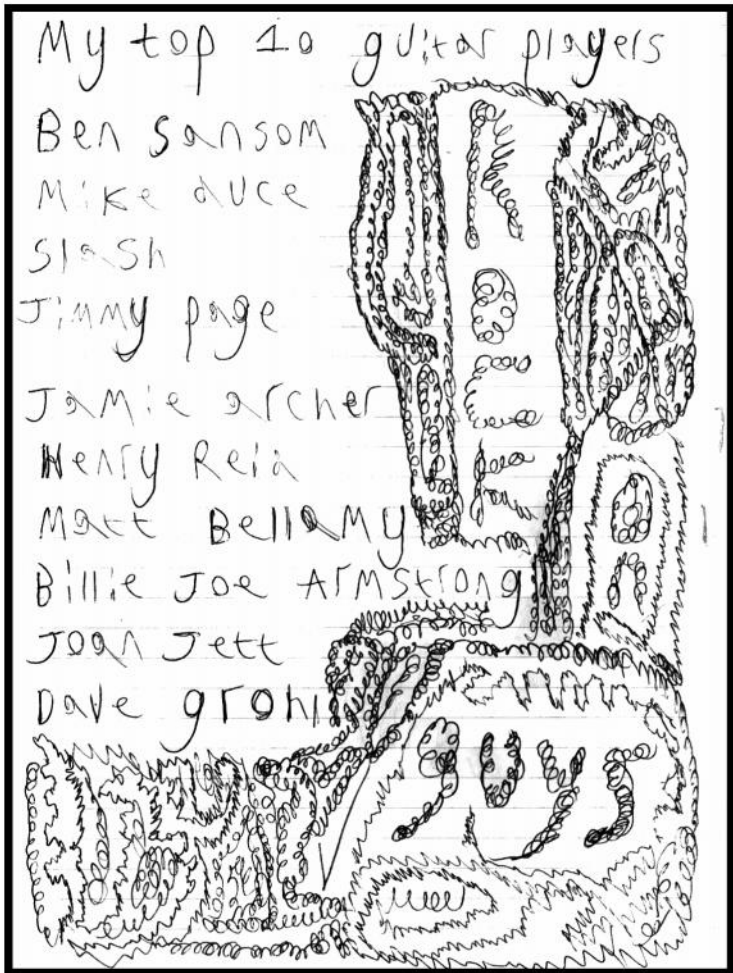 My top 10 guitar players
Ben sansom
Mike duce
Slash
Jimmy page
Jamie archer
Henry Reid
Matt Bellamy
Billie Joe Armstrong
Joan Jett
Dave grohl
rock
on
guys